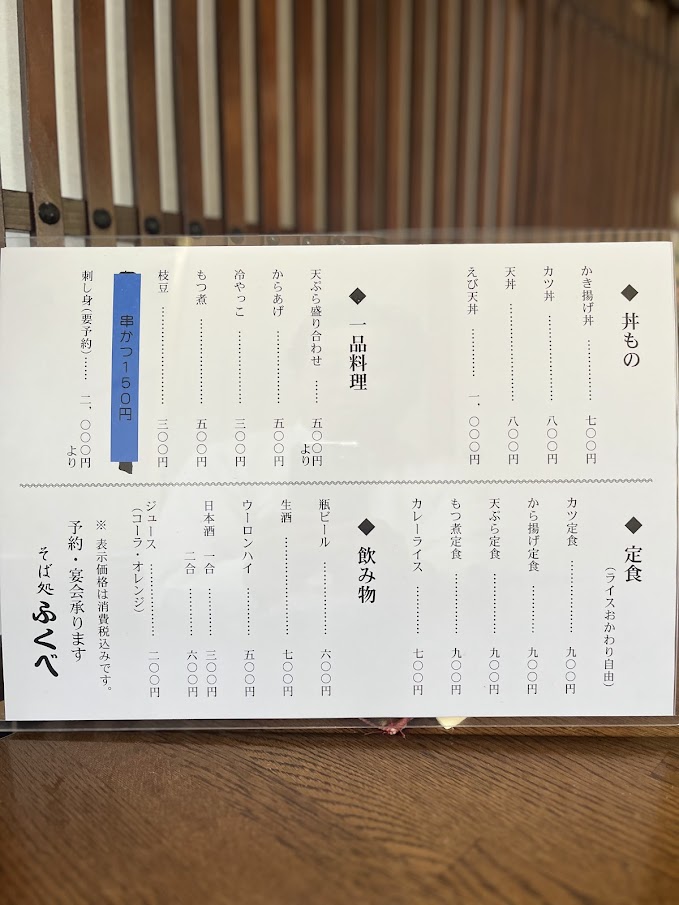 ◆ 丼もの
かき揚げ丼 ………… 七〇〇円
カツ丼 ………… 八〇〇円
天丼 ………… 八〇〇円
えび天丼 ………… 一、〇〇〇円
◆ 一品料理
天ぷら盛り合わせ …… 五〇〇円より
からあげ ………… 五〇〇円
冷やっこ ………… 三〇〇円
もつ煮 ………… 五〇〇円
枝豆 ………… 三〇〇円
串かつ150円
刺し身(要予約)…… 二、〇〇〇円より
◆ 定食
(ライスおかわり自由)
カツ定食 ………… 九〇〇円
から揚げ定食 ………… 九〇〇円
天ぷら定食 ………… 九〇〇円
もつ煮定食 ………… 九〇〇円
カレーライス ………… 七〇〇円
◆ 飲み物
瓶ビール ………… 六〇〇円
生酒 ………… 七〇〇円
ウーロンハイ ………… 五〇〇円
日本酒 一合 ………… 三〇〇円
二合 ………… 六〇〇円
ジュース ………… 二〇〇円
(コーラ・オレンジ)
※ 表示価格は消費税込みです。
予約・宴会承ります
そば処 ふくべ